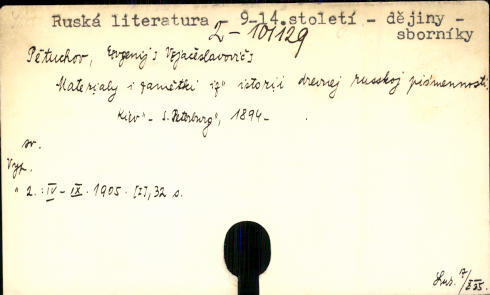 Ruská literatura - 9-14.století - dějiny -
sborníky
2-101129
Pětuchov, Evgenij Vjačeslavovič
Materjaly i zamětki iz" istorii drevnej russkoj pis'mennosti.
Kiev" - S. Peterburg", 1894-
sv.
Vyp.
" 2.: IV-IX. 1905. [I], 32 s.